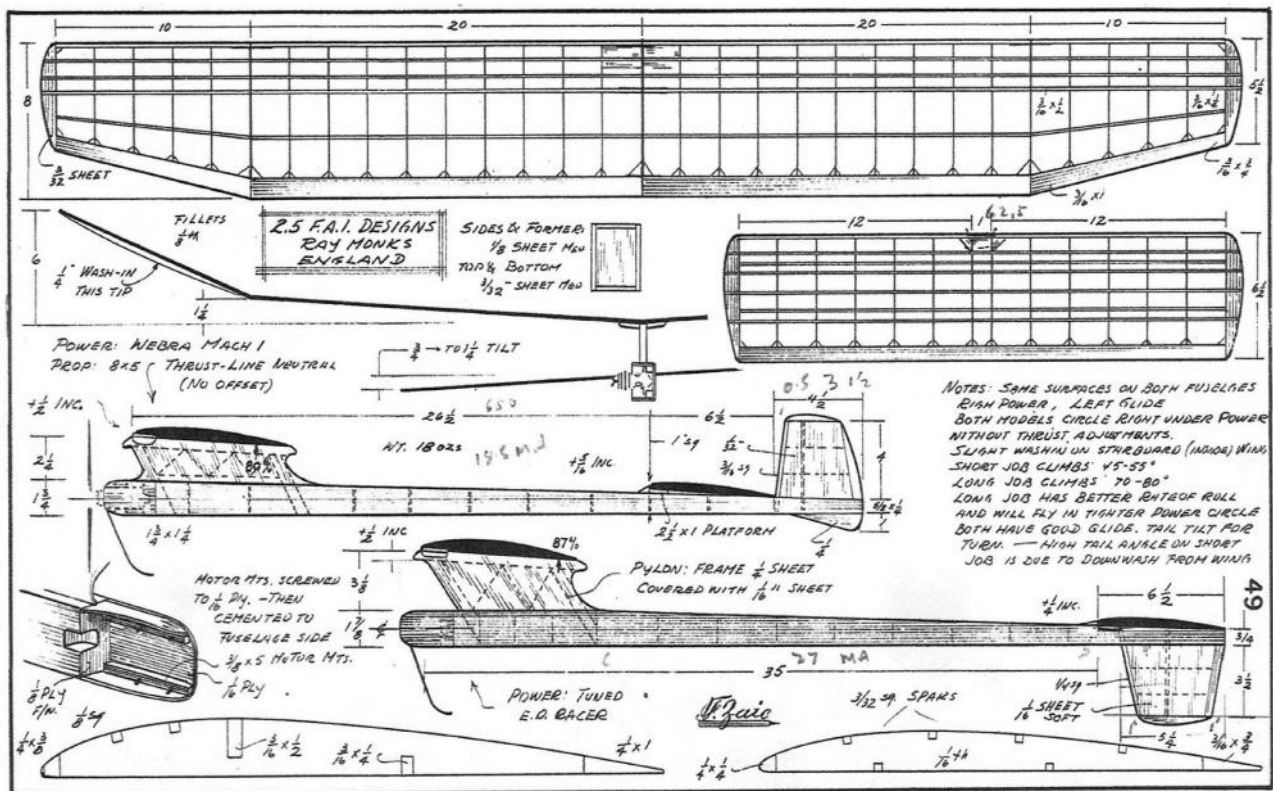 10 20 20 10
8
5 1/2
3/32 SHEET
3/16 x 1/2
3/16 x 1
FILLETS
1/8 th
2.5 F.A.I. DESIGNS
RAY MONKS
ENGLAND
SIDES & FORMERS
1/8 SHEET MED
TOP & BOTTOM
3/32" SHEET MED
12 1 12
6 1/2
6
1/4" WASH-IN
THIS TIP
1 1/4
POWER: WEBRA MACH 1
PROP: 8x5
THRUST-LINE NEUTRAL
(NO OFFSET)
3/4 → TO 1 1/4 TILT
+1/2 INC.
26 1/2
650
6 1/2
0.5 3 1 1/2
4 1/2
WT. 18 OZS
1" SQ
+5/16 INC.
2 1/4
1 3/4
89%
1/32
3/16 SQ
4
1
1/4
1 3/4 x 1 1/4
2 1/2 x 1 PLATFORM
NOTES: SAME SURFACES ON BOTH FUSELGES
RIGH POWER, LEFT GLIDE
BOTH MODELS CIRCLE RIGHT UNDER POWER
WITHOUT THRUST ADJUSTMENTS.
SLIGHT WASHIN ON STARBOARD (INDOR) WING
SHORT JOB CLIMBS 45-55°
LONG JOB CLIMBS 70-80°
LONG JOB HAS BETTER RATE OF ROLL
AND WILL FLY IN TIGHTER POWER CIRCLE
BOTH HAVE GOOD GLIDE. TAIL TILT FOR
TURN. — HIGH TAIL ANGLE ON SHORT
JOB IS DUE TO DOWNWASH FROM WING
+1/2 INC
87%
3 1/8
1 7/8
PYLON: FRAME 1/4 SHEET
COVERED WITH 1/16" SHEET
+1/4 INC.
6 1/2
49
3/4
3 1/2
MOTOR MTS. SCREWED
TO 1/16 PLY. - THEN
CEMENTED TO
FUSELAGE SIDE
3/8 x 5 MOTOR MTS.
1/16 PLY
1/8 PLY
F/W.
35
POWER: TUNED
E.D. RACER
F. Zaic
1/4 SQ
1/16 SHEET
SOFT
5 1/4
3/16 x 3/4
1/8 SQ
1/4 x 3/8
3/16 x 1/2
3/16 x 1/4
1/4 x 1
3/32 SQ. SPARS
1/4 x 1/4
1/16 th